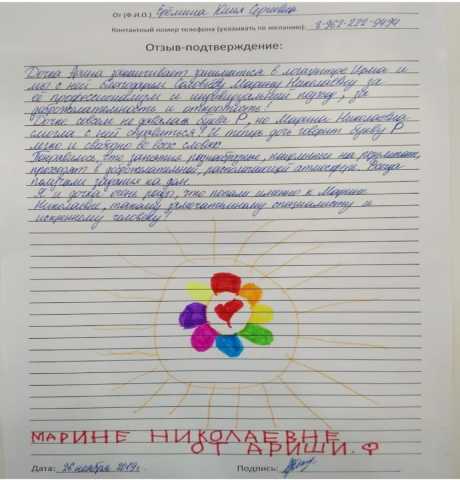 От (Ф.И.О.) Ерёмина Юлия Сергеевна
Контактный номер телефона (указывать по желанию):
Отзыв-подтверждение:
Дочка Арина заканчивает заниматься в логоцентре Ирма и
мы с ней благодарим Соловьёву Марину Николаевну за
её профессионализм и индивидуальный подход, за
доброжелательность и отзывчивость!
Дочке совсем не давалась буква Р, но Марина Николаевна
смогла с ней справиться! И теперь дочь говорит букву Р
легко и свободно во всех словах.
Понравилось, что занятия разнообразные, нацеленные на результат,
проходят в доброжелательной, располагающей атмосфере. Всегда
получали задания на дом.
Я и дочка очень рады, что попали именно к Марине
Николаевне, такому замечательному специалисту и
искреннему человеку!
МАРИНЕ НИКОЛАЕВНЕ
ОТ АРИШИ. Ф
Дата: 26 ноября 2019г. Подпись: